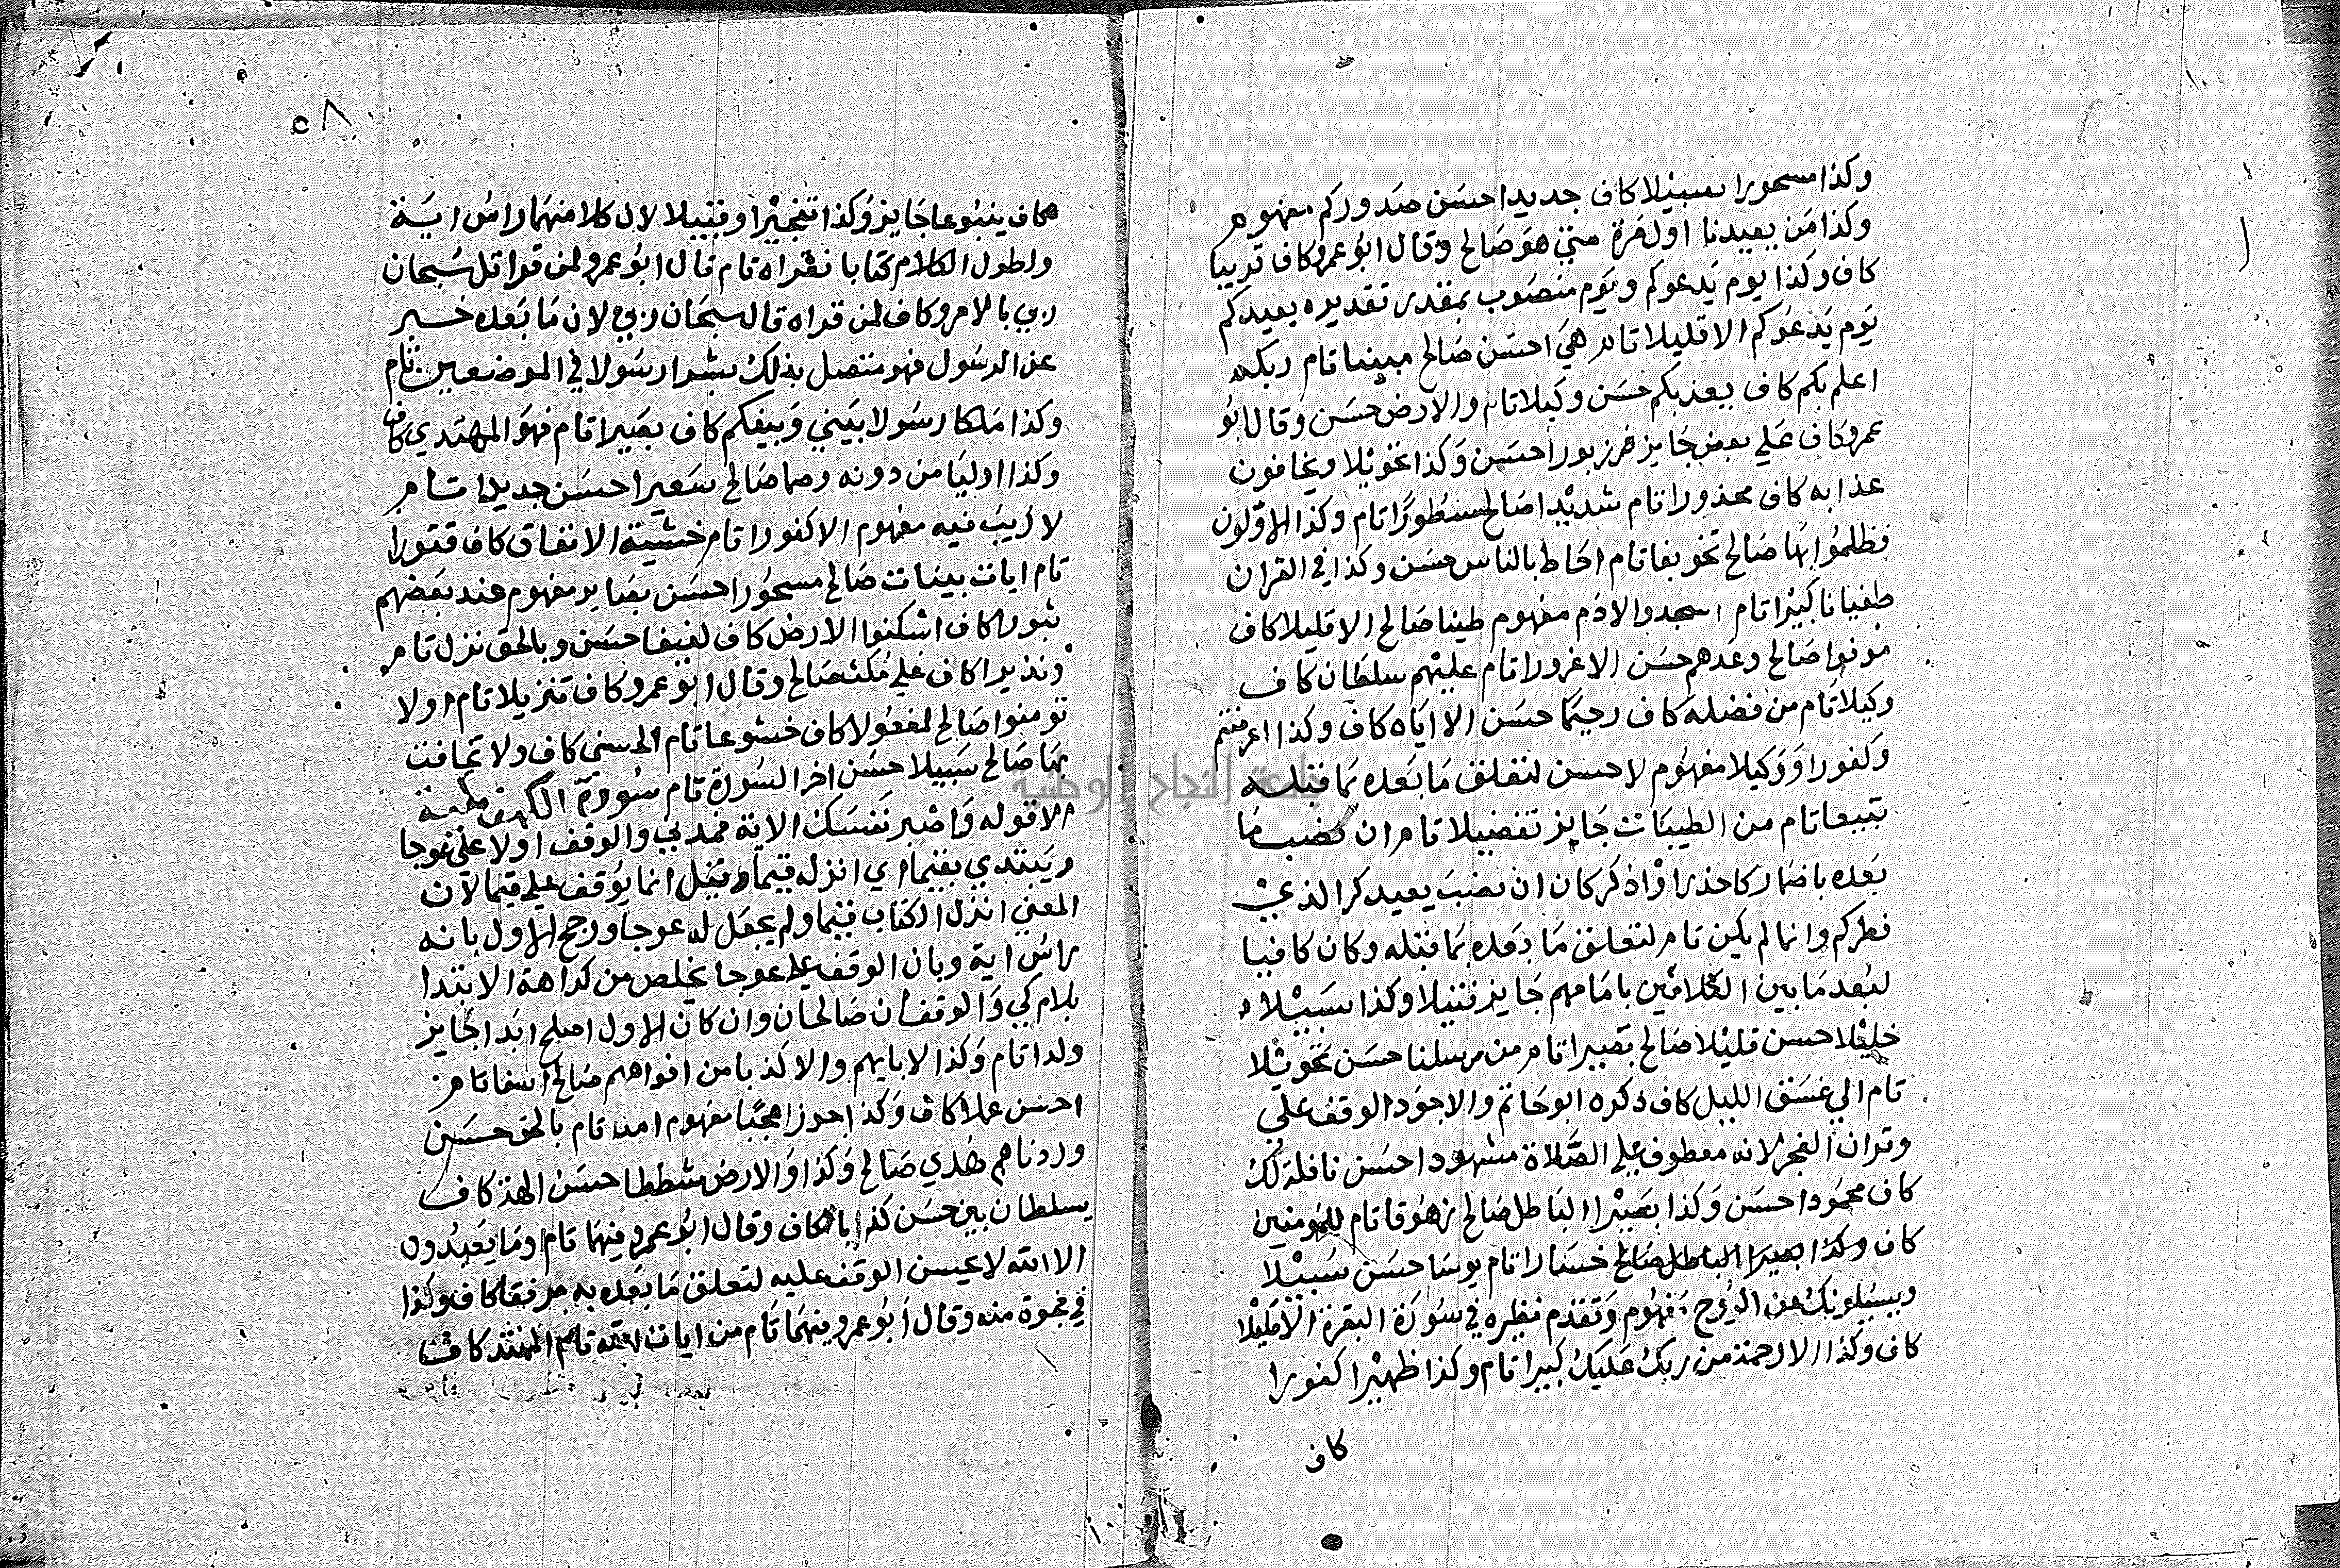 وكذا مسحورا سبيلا كاف جديدا حسن صدوركم مفهوم
وكذا من يعيدنا اول مرة متى هو صالح وقال ابو عمرو كاف قريبا
كاف وكذا يوم يدعوكم ويوم منصوب بمقدر تقديره يعيدكم
يوم يدعوكم الا قليلا تام هي احسن صالح مبينا تام ربكم
اعلم بكم كاف يعذبكم حسن وكيلا تام والارض حسن وقال ابو
عمرو كاف علي بعض جايز زبورا حسن وكذا تحويلا ويخافون
عذابه كاف محذورا تام شديدا صالح مسطورا تام وكذا الاولون
فظلموا بها صالح تخويفا تام احاط بالناس حسن وكذا في القران
طغيانا كبيرا تام اسجدوا لادم مفهوم طينا صالح الا قليلا كاف
موفورا صالح وعدهم حسن الا غرورا تام عليهم سلطان كاف
وكيلا تام من فضله كاف رحيما حسن الا اياه كاف وكذا اعرضتم
وكفورا ووكيلا مفهوم لا حسن لتعلق ما بعده بما قبله
تبيعا تام من الطيبات جايز تفضيلا تام ان نصب ما
بعده باضمار كاحذر او اذكر كان نصب يعيدكم الذي
فطركم وانما لم يكن تام لتعلق ما بعده بما قبله وكان كافيا
لبعد ما بين الكلامين بامامهم جايز فتيلا وكذا سبيلا
خليلا حسن قليلا صالح نصيرا تام من رسلنا حسن تحويلا
تام الي غسق الليل كاف ذكره ابو حاتم والاجود الوقف علي
وقران الفجر لانه معطوف علي الصلاة مشهودا حسن نافلة لك
كاف محمودا حسن وكذا نصيرا الباطل صالح زهوقا تام للمومنين
كاف وكذا نصيرا الباطل صالح خسارا تام يوسا حسن سبيلا
ويسيلونك عن الروح مفهوم وتقدم نظيره في سورة البقرة الا قليلا
كاف وكذا الا رحمة من ربك عليك كبيرا تام وكذا ظهيرا كفورا
كاف
٥٨
كاف ينبوعا جايز وكذا تفجيرا وقبيلا لان كلا منهما راس اية
ولطول الكلام كتابا نقراه تام قال ابو عمرو لمن قرا قل سبحان
ربي بالامر وكاف لمن قراه قال سبحان ربي لان ما بعده خبر
عن الرسول فهو متصل بذلك بشرا رسولا في الموضعين تام
وكذا ملكا رسولا بيني وبينكم كاف بصيرا تام فهو المهتدي كاف
وكذا اوليا من دونه وصما صالح سعيرا حسن جديدا تام
لا ريب فيه مفهوم الا كفورا تام خشية الانفاق كاف قتورا
تام ايات بينات صالح مسحورا حسن بصاير مفهوم عند بعضهم
ثبورا كاف اسكنوا الارض كاف لفيفا حسن وبالحق نزل تام
ونذيرا كاف علي مكث صالح وقال ابو عمرو كاف تنزيلا تام اولا
تومنوا صالح لمفعولا كاف خشوعا تام الحسني كاف ولا تخافت
بها صالح سبيلا حسن اخر السورة تام سورة الكهف مكية
الا قوله واصبر نفسك الاية فمدني والوقف اولا علي عوجا
ويبتدي بقيما اي انزله قيما وقيل انما يوقف علي قيما لان
المعني انزل الكتاب قيما ولم يجعل له عوجا ورجح الاول بانه
راس اية وبان الوقف علي عوجا يخلص من كراهة الابتدا
بلام كي والوقفان صالحان وان كان الاول اصلح ابدا جايز
ولدا تام وكذا لابايهم والا كذبا من افواههم صالح اسفا تام
احسن عملا كاف وكذا جرزا عجبا مفهوم امدا تام بالحق حسن
وردناهم هدي صالح وكذا والارض شططا حسن الهة كاف
بسلطان بين حسن كذبا كاف وقال ابو عمرو فيهما تام وما يعبدون
الا الله لا يحسن الوقف عليه لتعلق ما بعده به مرفقا كاف وكذا
في فجوة منه وقال ابو عمرو فيهما تام من ايات الله تام المهتد كاف
جامعة النجاح الوطنية